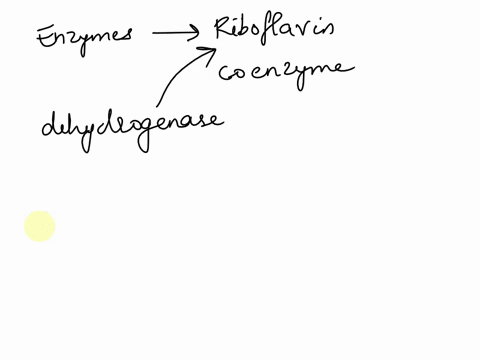 Enzymes → Riboflavin
coenzyme
dehydrogenase